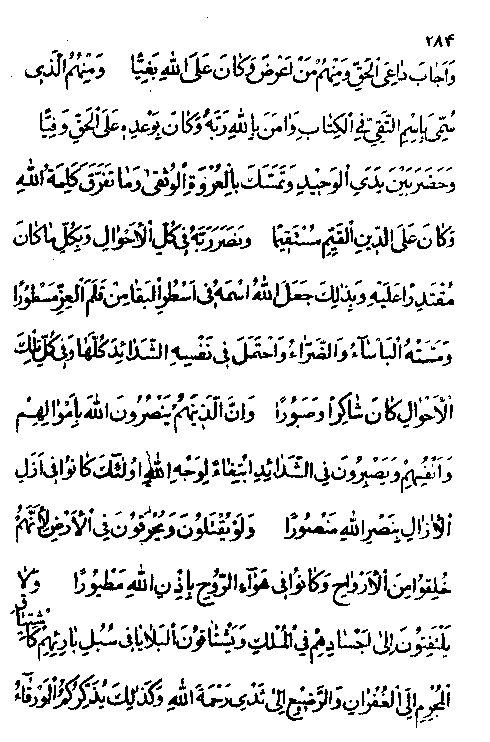 ۲۸۴
وَاَجَابَ دٰاعِیَ الْحَقِّ وَمِنْهُمْ مَنْ اَعْرَضَ وَكٰانَ عَلَی اللّٰهِ بَغِيًّا وَمِنْهُمُ الَّذی
سُمِّیَ بِاِسْمِ التَّقِیِّ فِی الْكِتٰابِ وَاٰمَنَ بِاللّٰهِ رَبِّهٖ وَكٰانَ بِوَعْدِهٖ عَلَی الْحَقِّ وَفِيًّا
وَحَضَرَ بَيْنَ يَدَیِ الْوَحيدِ وَتَمَسَّكَ بِالْعُرْوَةِ الْوُثْقیٰ وَمٰا تَفَرَّقَ كَلِمَةَ اللّٰهِ
وَكٰانَ عَلَی الدّينِ الْقَيِّمِ مُسْتَقيمًا وَنَصَرَ رَبَّهُ فی كُلِّ الْاَحْوٰالِ وَبِكُلِّ مٰا كٰانَ
مُقْتَدِرًا عَلَيْهِ وَبِذٰلِكَ جَعَلَ اللّٰهُ اسْمَهُ فی اَسْطُرِ الْبَقٰا مِنْ قَلَمِ الْعِزِّ مَسْطُورًا
وَمَسَّتْهُ الْبَأْسٰاءُ وَالضَّرّٰاءُ وَاحْتَمَلَ فی نَفْسِهِ الشَّدٰائِدَ كُلَّهٰا وَفی كُلِّ تِلْكَ
الْاَحْوٰالِ كٰانَ شٰاكِرًا وَصَبُورًا وَاِنَّ الَّذينَهُمْ يَنْصُرُونَ اللّٰهَ بِاَمْوٰالِهِمْ
وَاَنْفُسِهِمْ وَيَصْبِرُونَ فِی الشَّدٰائِدِ ابْتِغٰاءً لِوَجْهِ اللّٰهِ اُولٰئِكَ كٰانُوا فی اَزَلِ
الْاٰزٰالِ بِنَصْرِ اللّٰهِ مَنْصُورًا وَلَوْ يُقْتَلُونَ وَيُحْرَقُونَ فِی الْاَرْضِ لِاَنَّهُمْ
خُلِقُوا مِنَ الْاَرْوٰاحِ وَكٰانُوا فی هَوٰاءِ الرُّوحِ بِاِذْنِ اللّٰهِ مَطْيُورًا وَلٰا
يَلْتَفِتُونَ اِلیٰ اَجْسٰادِهِمْ فِی الْمُلْكِ وَيَشْتٰاقُونَ الْبَلٰايٰا فی سُبُلِ بٰارِئِهِمْ كَاشْتِيٰاقِ
الْمُجْرِمِ اِلَی الْغُفْرٰانِ وَالرَّضيعِ اِلیٰ ثَدْیِ رَحْمَةِ اللّٰهِ وَكَذٰلِكَ يُذَكِّرُكُمُ الْوَرْقٰاءُ